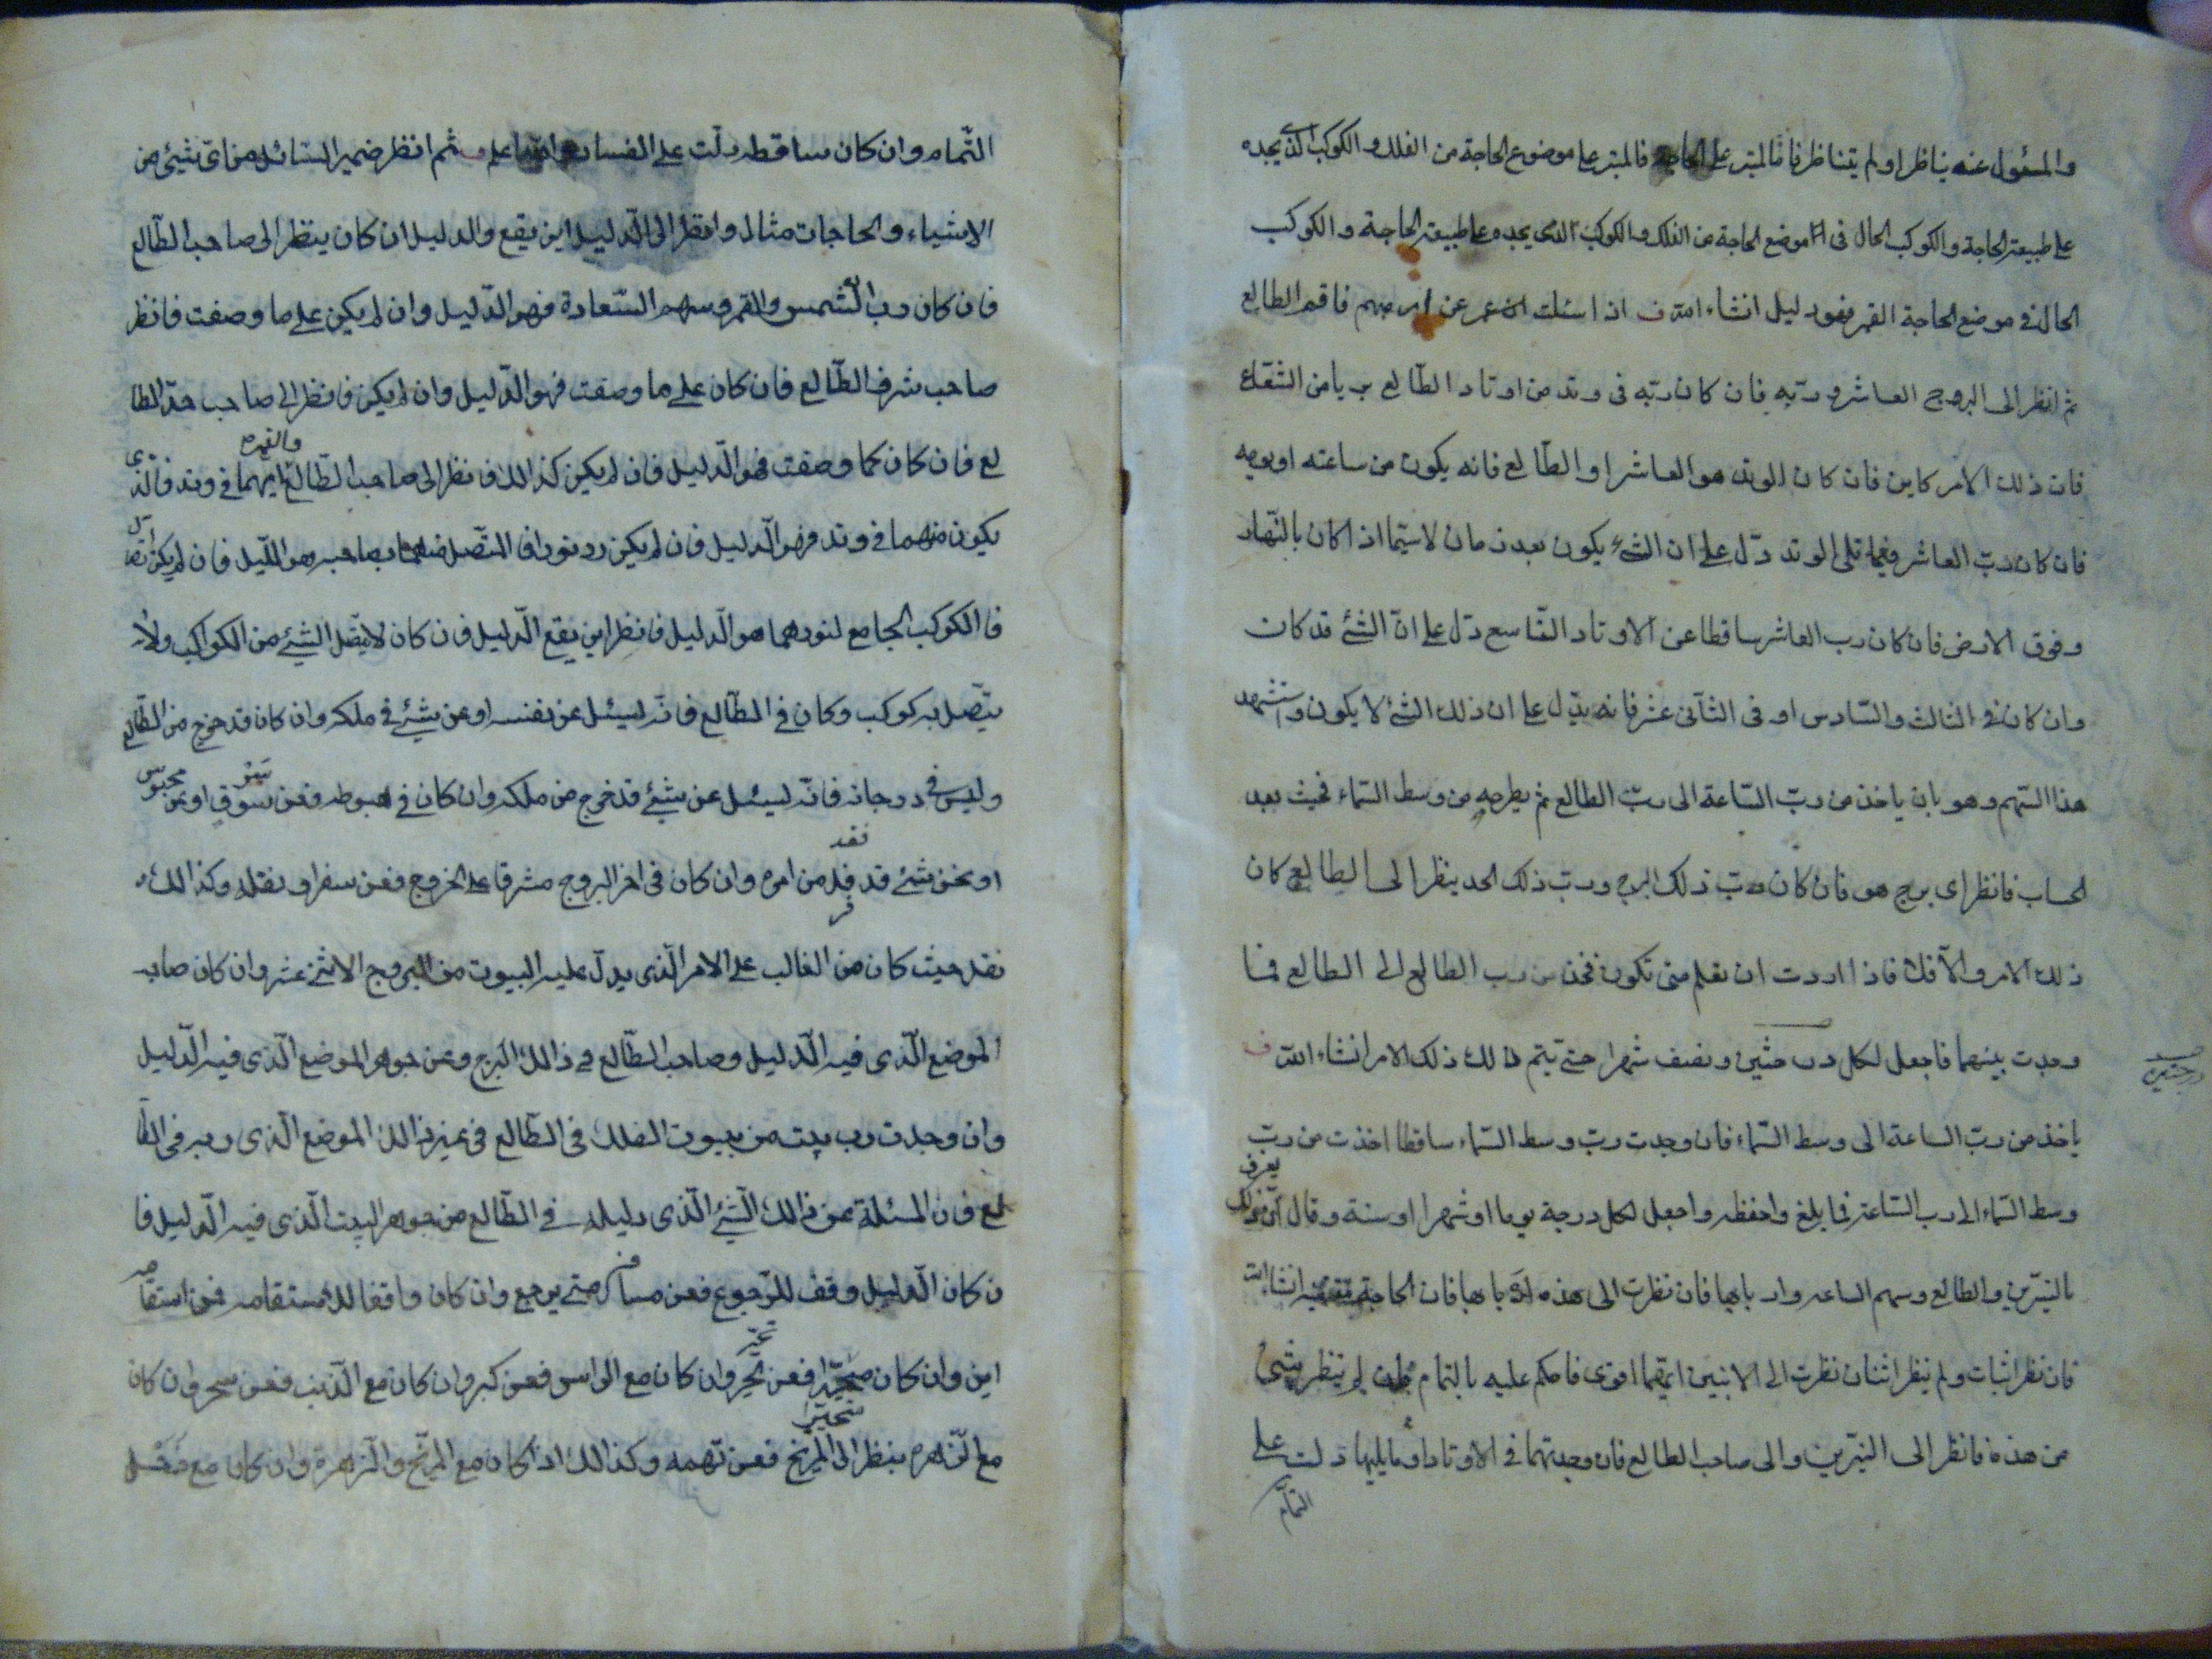 والمسئول عنه يناظر او لم يتناظرفا فالمبتز على الحاجة فالمبتز على موضوع الحاجة من الفلك والكوكب الذى يجده
على طبيعة الحاجة والكوكب الحال فى موضع الحاجة من الفلك والكوكب الذى يجده على طبيعة الحاجة والكوكب
الحال فى موضع الحاجة القمر فهو دليل انشاء الله ف اذا سئلت عن امر مهم فاقم الطالع
ثم انظر الى البروج العاشر وربه فان كان ربه فى وتد من اوتاد الطالع بريا من
فان ذلك الامر كاين فان كان الوتد هو العاشر او الطالع فانه يكون من ساعته او يومه
فان كان رب العاشر فيما تلى الوتد دل على ان الشئ يكون بعد زمان لاسيما اذا كان بالنهار
وفوق الارض فان كان رب العاشر ساقطا عن الاوتاد التاسع دل على ان الشئ قد كان
وان كان فى الثالث والسادس او فى الثانى عشر فانه يدل على ان ذلك الشئ لا يكون واستشهد
هذا السهم وهو بان ياخذ من رب الساعة الى رب الطالع ثم يطرحه من وسط السماء فحيث بعد
الحساب فانظر اى برج هو فان كان رب ذلك البرج ورب ذلك الحد ينظر الى الطالع كان
ذلك الامر والا فلا فاذا اردت ان تعلم متى تكون فخذ من رب الطالع الى الطالع فما
وجدت بينهما فاجعل لكل درجتين ونصف شهرا حتى يتم ذلك الامر انشاء الله ف
درجتين
ياخذ من رب الساعة الى وسط السماء فان وجدت رب وسط السماء ساقطا اخذت من رب
وسط السماء الى رب الساعة فما يبلغ واحفظه واجعل لكل درجة يوما او شهرا او سنة وقال يعرف ذلك
بالنيرين والطالع وسهم الساعه واربابها فان نظرت الى هذه اربابها فان الحاجة انشاالله
فان نظر اثبات ولم ينظر اثنان نظرت الى الاثنين ايهما اقوى فاحكم عليه بالتمام فان لم ينظر شئ
من هذه فانظر الى النيرين والى صاحب الطالع فان وجدتهما فى الاوتاد او ما يليها دلت على
التمام
التمام وان كان ساقطه دلت على الفساد ف ثم انظر ضمير السائل من اى شئ من
الاشياء والحاجات مثال وانظر الى الدليل اين يقع والدليل ان كان ينظر الى صاحب الطالع
فان كان رب الشمس والقمر وسهم السعادة فهو الدليل وان لم يكن على ما وصفت فانظر
صاحب شرف الطالع فان كان على ما وصفت فهو الدليل وان لم يكن فانظر الى صاحب حد الطا
لع فان كان كما وصفت فهو الدليل فان لم يكن كذالك فانظر الى صاحب الطالع والقمر ايهما فى وتد فالذى
يكون منهما فى وتد فهو الدليل فان لم يكن المتصل بصاحبه هو الدليل فان لم يكن اتصل
فا الكوكب الجامع لنورهما هو الدليل فانظر اين يقع الدليل فان كان لا يتصل الشيئ من الكواكب ولا
يتصل به كوكب وكان فى الطالع فانه ليسئل عن نفسه او عن شيئ فى ملكه وان كان قد خرج من الطالع
وليس فى درجاته فانه ليسئل عن شيئ قد خرج من ملكه وان كان فى هبوطه فعن او عن محبوس
او عن شئ قد فقد من امره وان كان فى اخر البروج مشرقا على الخروج فعن سفر او نقله وكذالك
نقله حيث كان من الغالب على الامر الذى يدل عليه البيوت من البروج الاثنى عشر وان كان صاحب
الموضع الذى فيه الدليل وصاحب الطالع فى ذالك البرج وعن جوهر الموضع الذى فيه الدليل
وان وجدت رب بيته من بيوت الفلك فى الطالع فى غيز ذالك الموضع الذى ربه فى الطا
لع فان المسئلة عن ذالك الشيئ الذى دليله فى الطالع من جوهر البيت الذى فيه الدليل فا
ن كان الدليل وقف للرجوع فعن مسافر متى يرجع وان كان واقفا للاستقامه فعن استقامه
اين وان كان متحيرا فعن تحير وان كان مع الراس فعن كبر وان كان مع الذنب فعن سحر وان كان
مع الزهره ينظر الى المريخ فعن تهمه وكذالك اذا كان مع المريخ والزهرة وان كان مع زحل